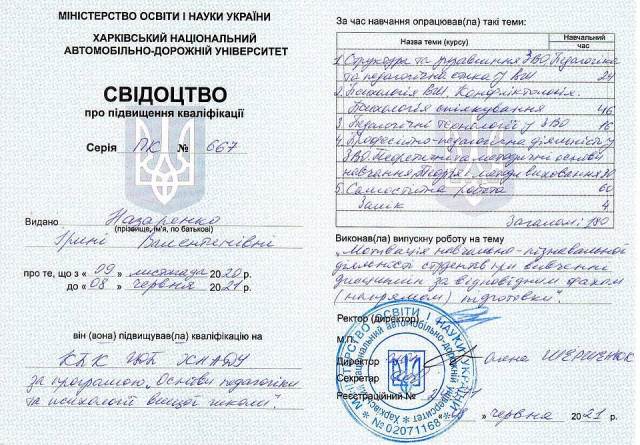 МІНІСТЕРСТВО ОСВІТИ І НАУКИ УКРАЇНИ
ХАРКІВСЬКИЙ НАЦІОНАЛЬНИЙ
АВТОМОБІЛЬНО-ДОРОЖНІЙ УНІВЕРСИТЕТ
СВІДОЦТВО
про підвищення кваліфікації
Серія ПК № 667
Видано Назаренко
(прізвище, ім'я, по батькові)
Ірині Валентинівні
про те, що з « 09 » листопада 2020р.
до « 08 » червня 2021р.
він (вона) підвищував(ла) кваліфікацію на
ХНАДУ
за програмою „Основи педагогіки
та психології вищої школи".
За час навчання опрацював(ла) такі теми:
Назва теми (курсу) Навчальний час
1. Структура та управління ЗВО. Педагогіка
та педагогічна етика у ВШ. 24
2. Психологія ВШ. Конфліктологія.
Психологія спілкування 46
3. Педагогічні технології у ЗВО 16
4. Професійно-педагогічна діяльність у
ЗВО. Теоретичні та методичні основи
навчання. Теорія і методи виховання 30
5. Самостійна робота 60
Залік 4
Загалом: 180
Виконав(ла) випускну роботу на тему
„Мотивація навчально-пізнавальної
діяльності студентів при вивченні
дисциплін за відповідним фахом
(напрямом) підготовки".
Ректор (директор)
М.П.
Директор
Секретар
Реєстраційний №
червня 2021
МІНІСТЕРСТВО ОСВІТИ І НАУКИ УКРАЇНИ
Харківський національний автомобільно-дорожній університет
№ 02071168